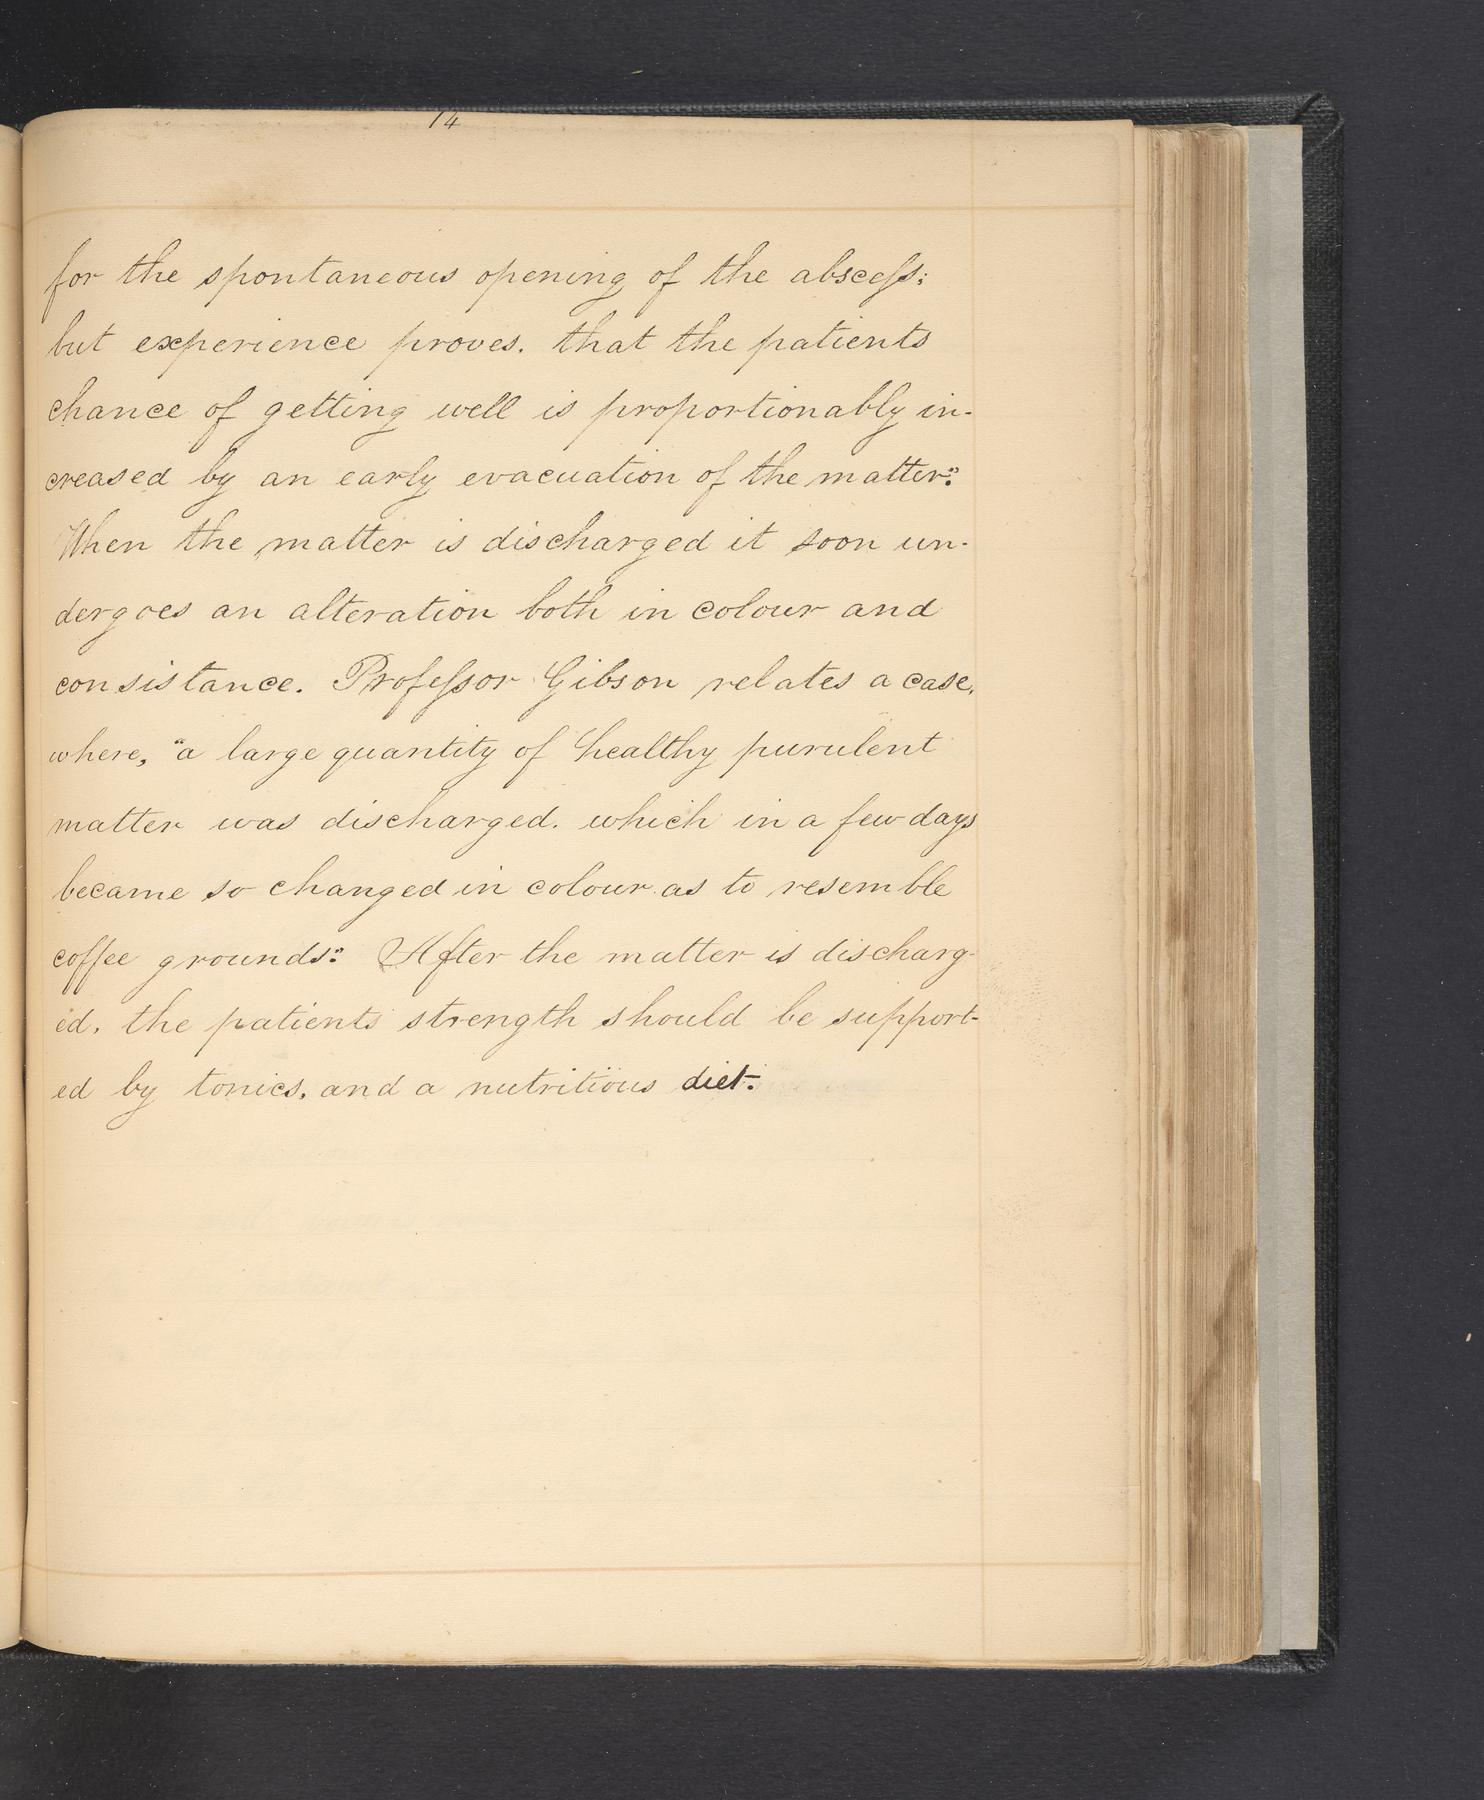 14
for the spontaneous opening of the abscess;
but experience proves. that the patients
chance of getting well is proportionably in-
creased by an early evacuation of the matter."
When the matter is discharged it soon un-
dergoes an alteration both in colour and
consistance. Professor Gibson relates a case,
where, "a large quantity of healthy purulent
matter was discharged. which in a few days
became so changed in colour as to resemble
coffee grounds." After the matter is discharg-
ed, the patients strength should be support-
ed by tonics, and a nutritious diet.